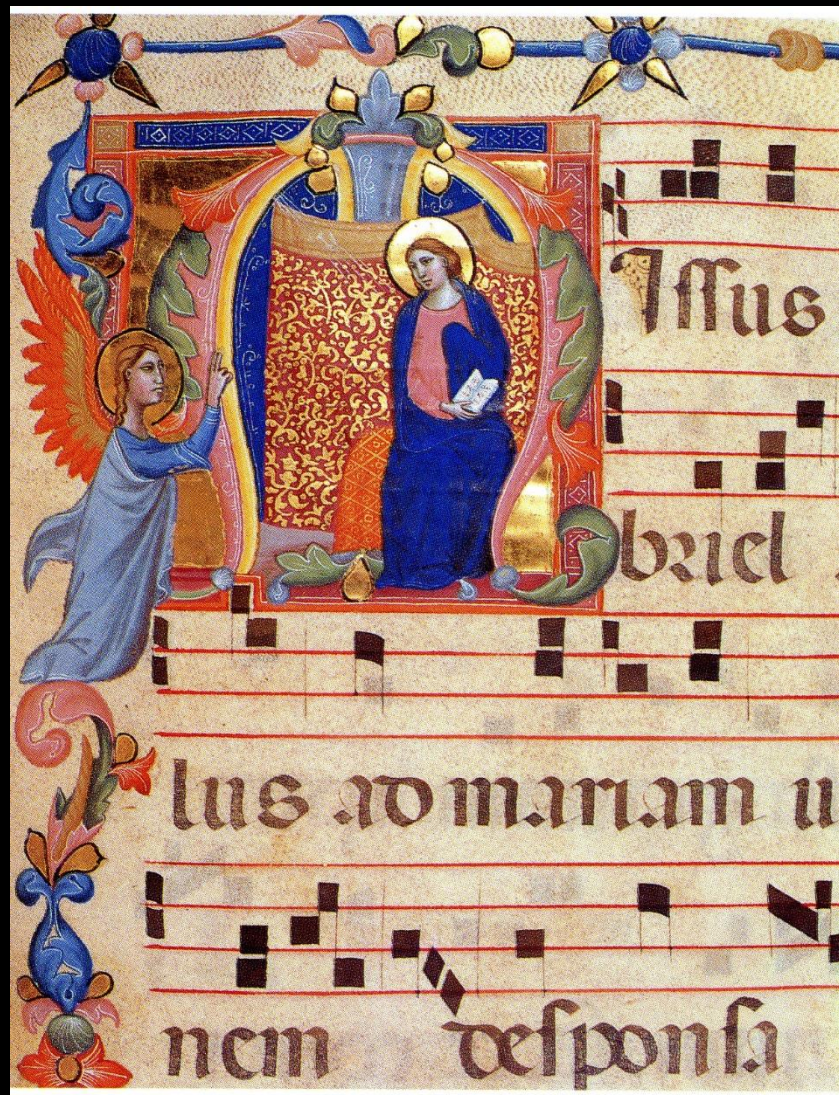 MIssus
briel
lus ad mariam u
nem desponsa